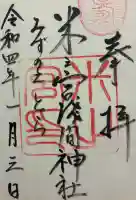 奉拝
米之宮浅間神社
みずのえとら
令和四年一月三日